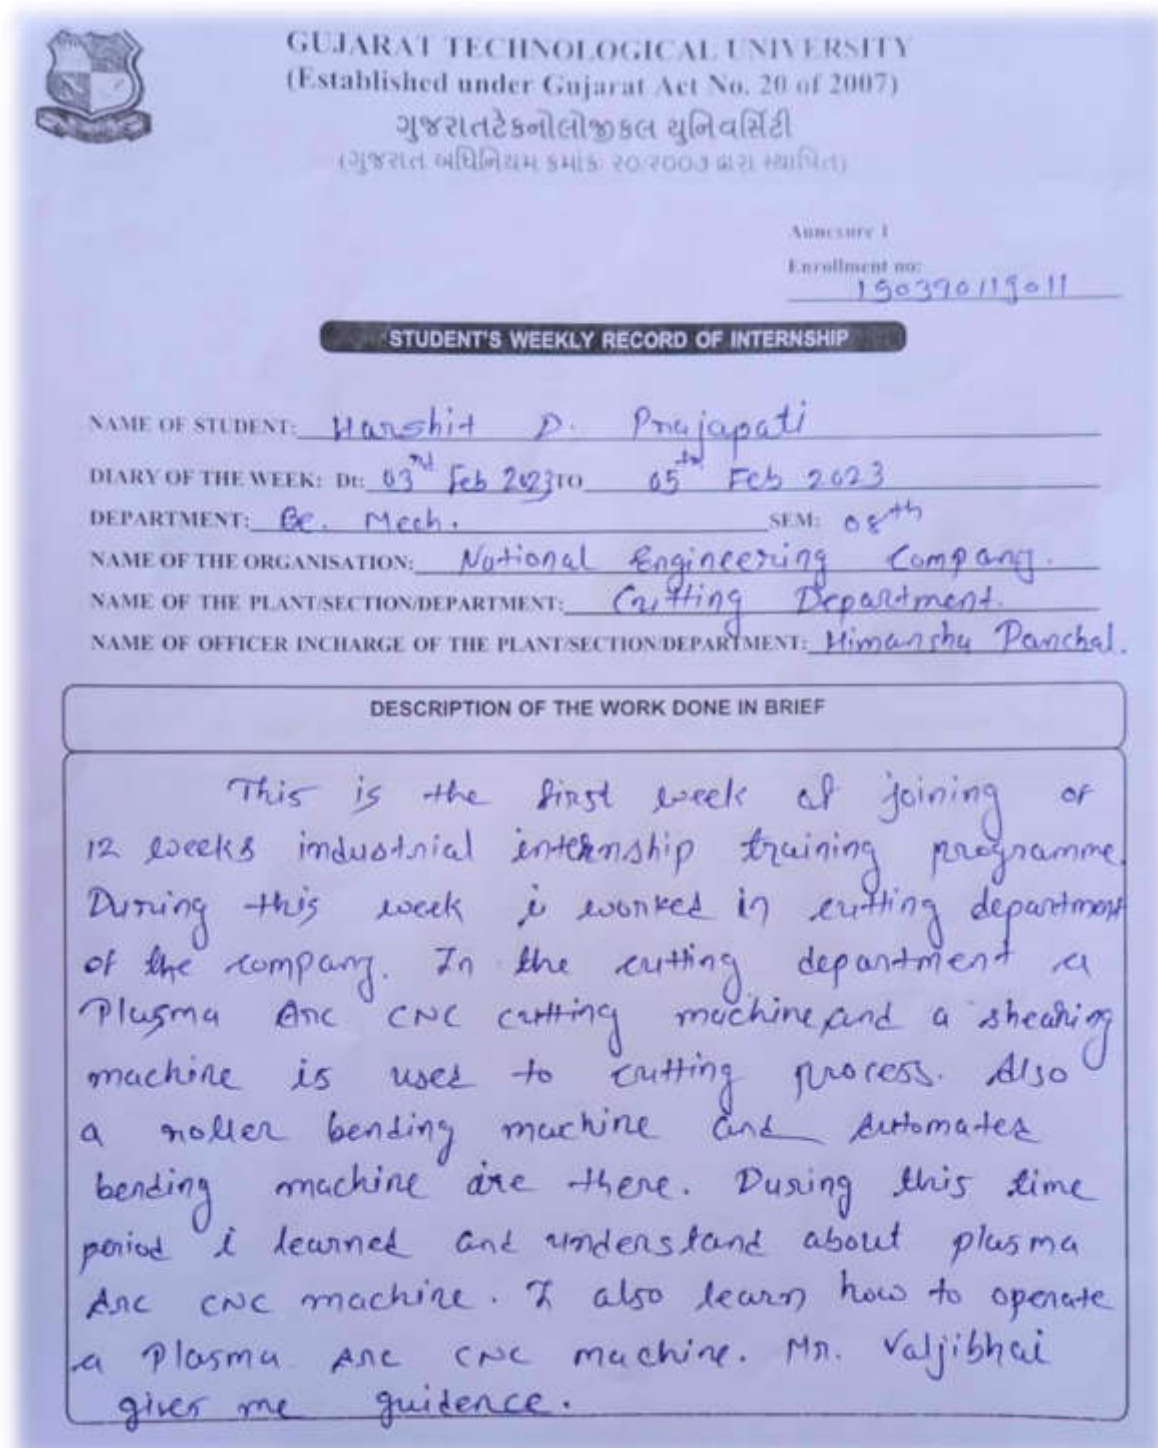 GUJARAT TECHNOLOGICAL UNIVERSITY
(Established under Gujarat Act No. 20 of 2007)
ગુજરાતટેકનોલોજીકલ યુનિવર્સિટી
(ગુજરાત અધિનિયમ ક્રમાંક: ૨૦/૨૦૦૭ દ્વારા સ્થાપિત)
Annexure 1
Enrollment no:
190390119011
STUDENT'S WEEKLY RECORD OF INTERNSHIP
NAME OF STUDENT: Harshit D. Prajapati
DIARY OF THE WEEK: Dt: 03rd Feb 2023 TO 05th Feb 2023
DEPARTMENT: Be. Mech. SEM: 08th
NAME OF THE ORGANISATION: National Engineering Company.
NAME OF THE PLANT/SECTION/DEPARTMENT: Cutting Department.
NAME OF OFFICER INCHARGE OF THE PLANT/SECTION/DEPARTMENT: Himanshu Panchal.
DESCRIPTION OF THE WORK DONE IN BRIEF
This is the first week of joining of
12 weeks industrial internship training programme.
During this week i worked in cutting department
of the company. In the cutting department a
Plasma Arc CNC cutting machine and a shearing
machine is used to cutting process. Also
a roller bending machine and Automated
bending machine are there. During this time
period i learned and understand about plasma
Arc CNC machine. I also learn how to operate
a Plasma Arc CNC machine. Mr. Valjibhai
gives me guidence.